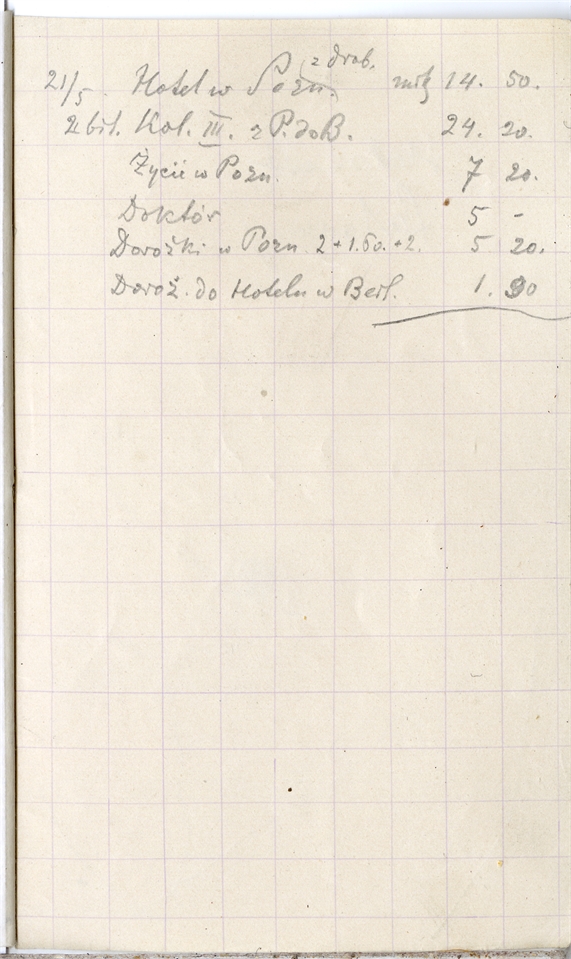 z drob.
21/5. Hotel w Pozn. mk 14. 50.
2 bil. Kol. III. z P. do B. 24. 20.
Życie w Pozn. 7 20.
Doktór 5 -
Dorożki w Pozn. 2 + 1.60. + 2. 5 20.
Doroż. do Hotelu w Berl. 1. 90